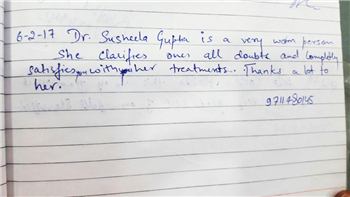 6-2-17 Dr. Susheela Gupta is a very worm person
She Clarifies ones all doubts and Completly
satisfies with her treatments.. Thanks a lot to
her.